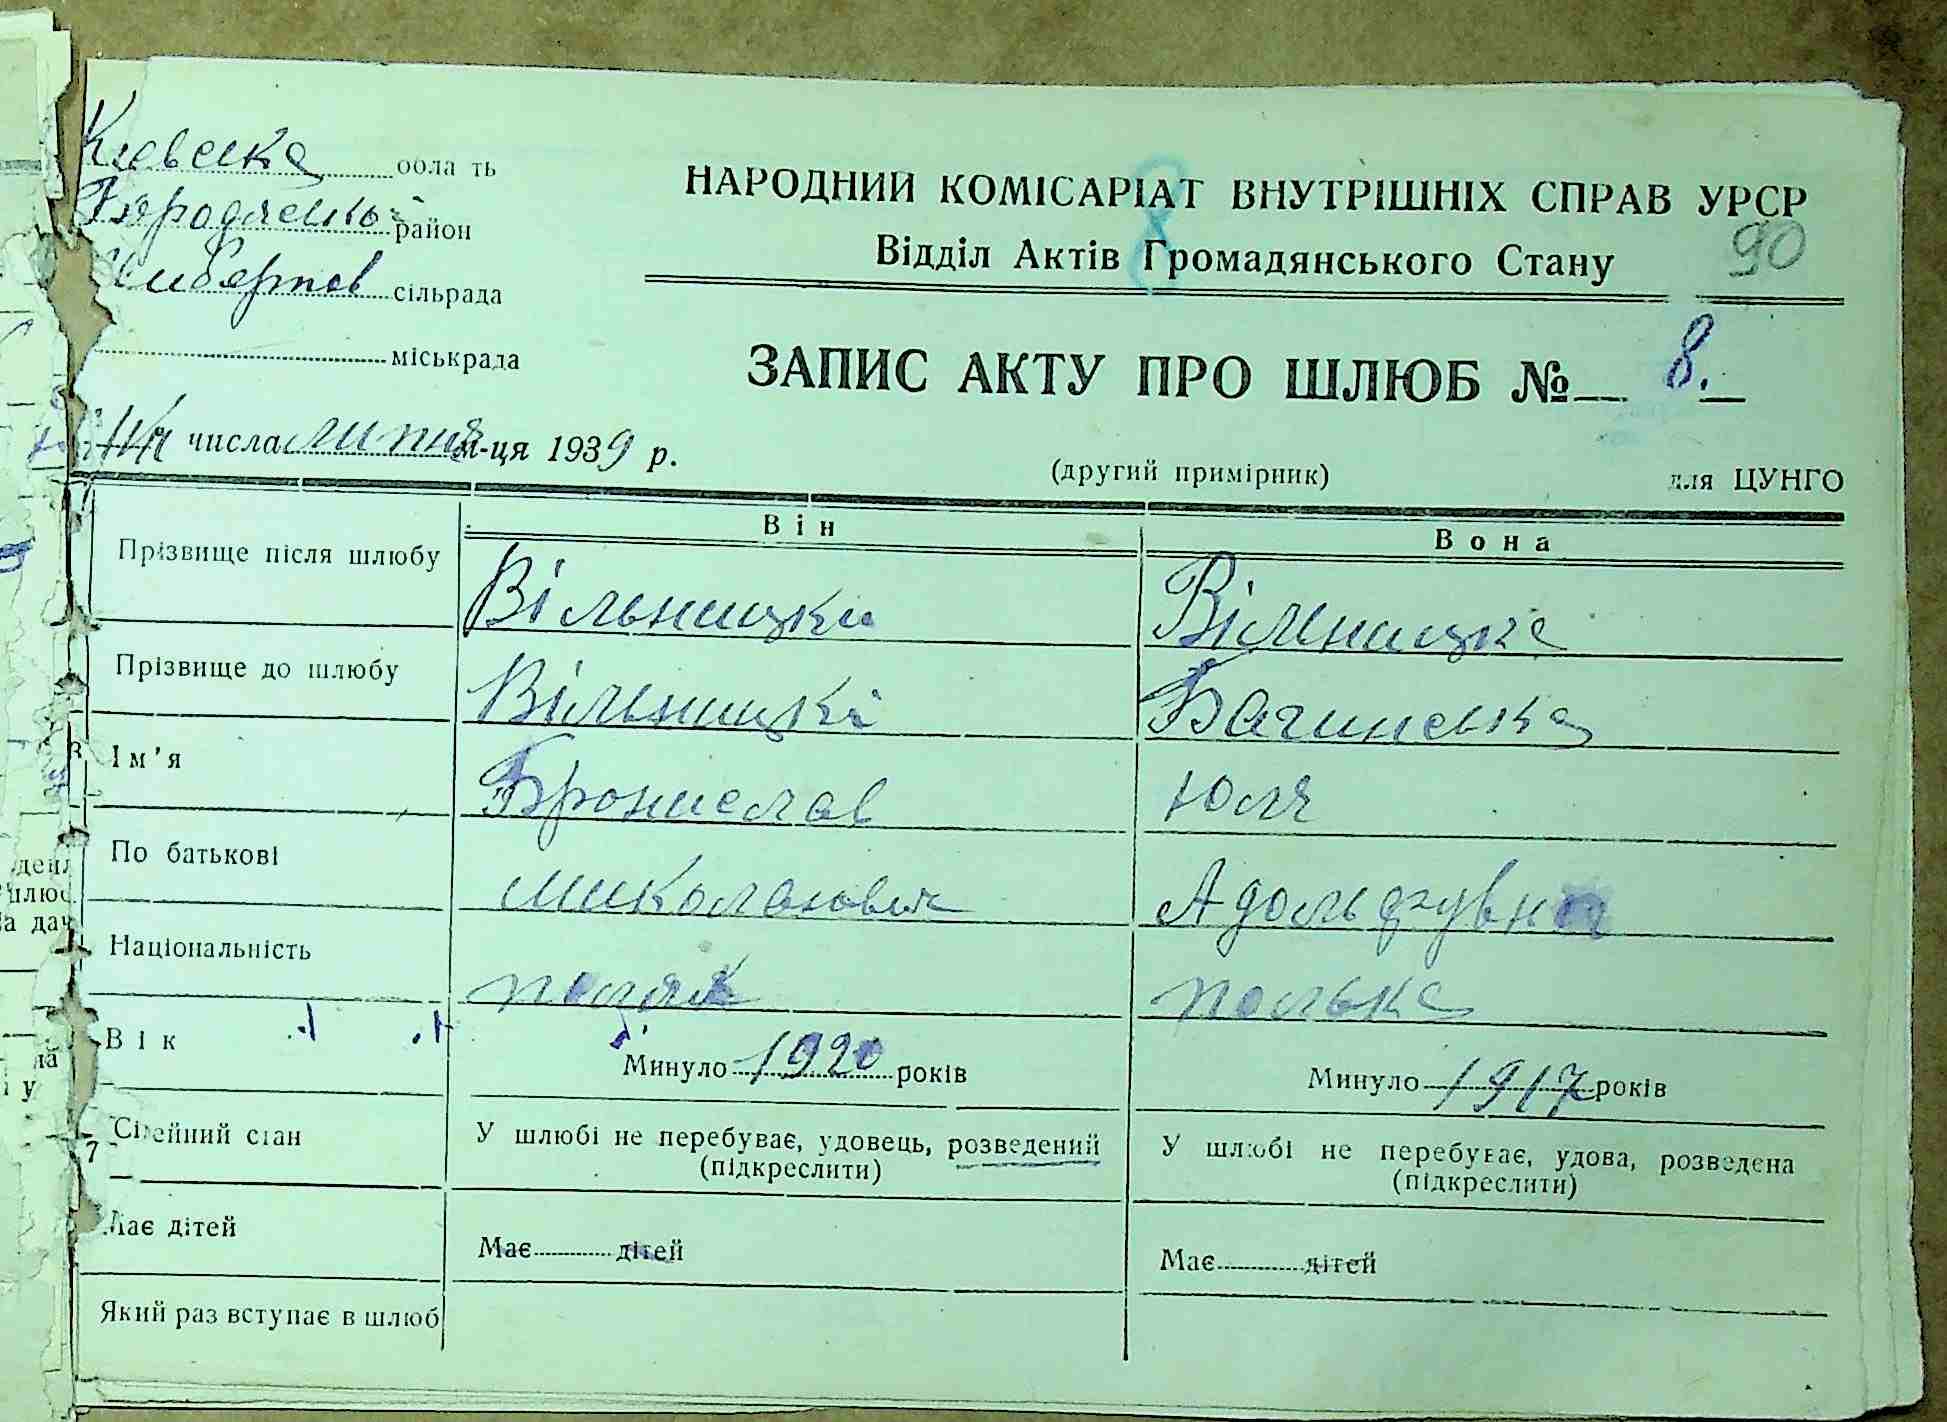 Київська область
Бородянськ район
сільрада
міськрада
числа липня м-ця 1939 р.
НАРОДНИЙ КОМІСАРІАТ ВНУТРІШНІХ СПРАВ УРСР
Відділ Актів Громадянського Стану
90
ЗАПИС АКТУ ПРО ШЛЮБ № 8.
(другий примірник) для ЦУНГО
Він Вона
Прізвище після шлюбу Вільницки Вільницка
Прізвище до шлюбу Вільницкі Багинська
Ім'я Бронислав Юля
По батькові Миколайович Адольфувна
Національність поляк полька
Вік Минуло 1920 років Минуло 1917 років
Сімейний стан У шлюбі не перебуває, удовець, розведений У шлюбі не перебуває, удова, розведена
(підкреслити) (підкреслити)
Має дітей Має дітей Має дітей
Який раз вступає в шлюб